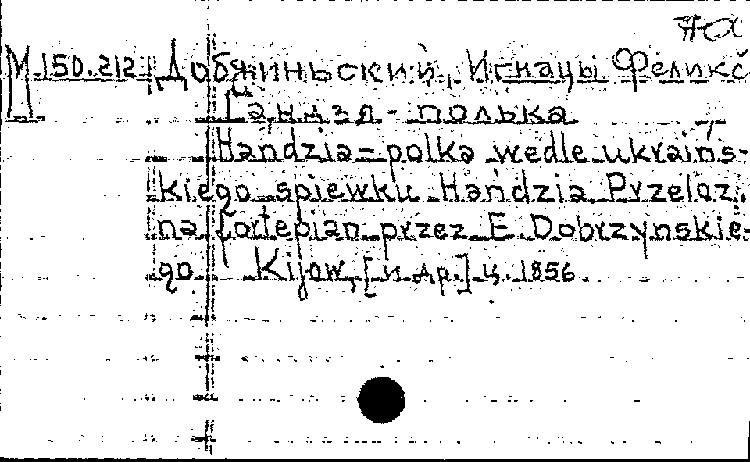 М 150.212 Добжиньский, Игнацы Феликс
Гандзя - полька
Handzia - polka wedle ukrains-
kiego spiewku Handzia Przeloz.
na fortepian przez E. Dobrzynskie-
go Kijow, [и др.] ц. 1856